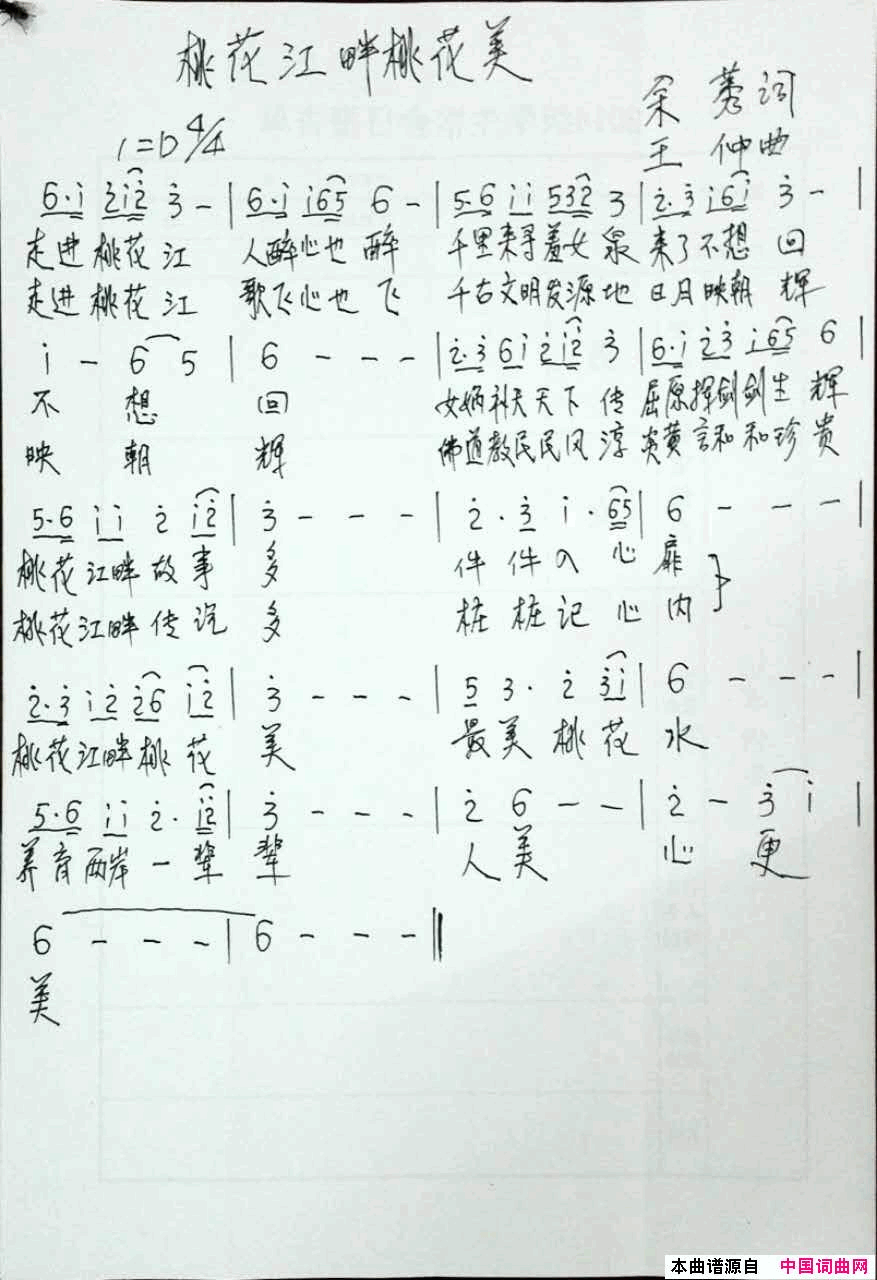 桃花江畔桃花美
余 秀词
王 仲曲
1=D 4/4
6·i 2i2 3 - | 6·i i65 6 - | 5·6 ii 532 3 | 2·3 i6i 3 - |
走进桃花江 人醉心也醉 千里来寻羞女泉 来了不想回
走进桃花江 歌飞心也飞 千古文明发源地 日月映朝辉
i - 6 5 | 6 - - - | 2·3 6i 2i2 3 | 6·i 23 i65 6 |
不 想 回 女娲补天天下传 屈原挥剑剑生辉
映 朝 辉 佛道教民民风淳 炎黄言和和珍贵
5·6 ii 2 i2 | 3 - - - | 2·3 i·65 | 6 - - - |
桃花江畔故事多 件件入心扉
桃花江畔传说多 桩桩记心内
2·3 i2 26 i2 | 3 - - - | 5 3· 2 3i | 6 - - - |
桃花江畔桃花美 最美桃花水
5·6 ii 2· i2 | 3 - - - | 2 6 - - | 2 - 3 i |
养育两岸一辈辈 人美 心 更
6 - - - | 6 - - - ‖
美
本曲谱源自 中国词曲网